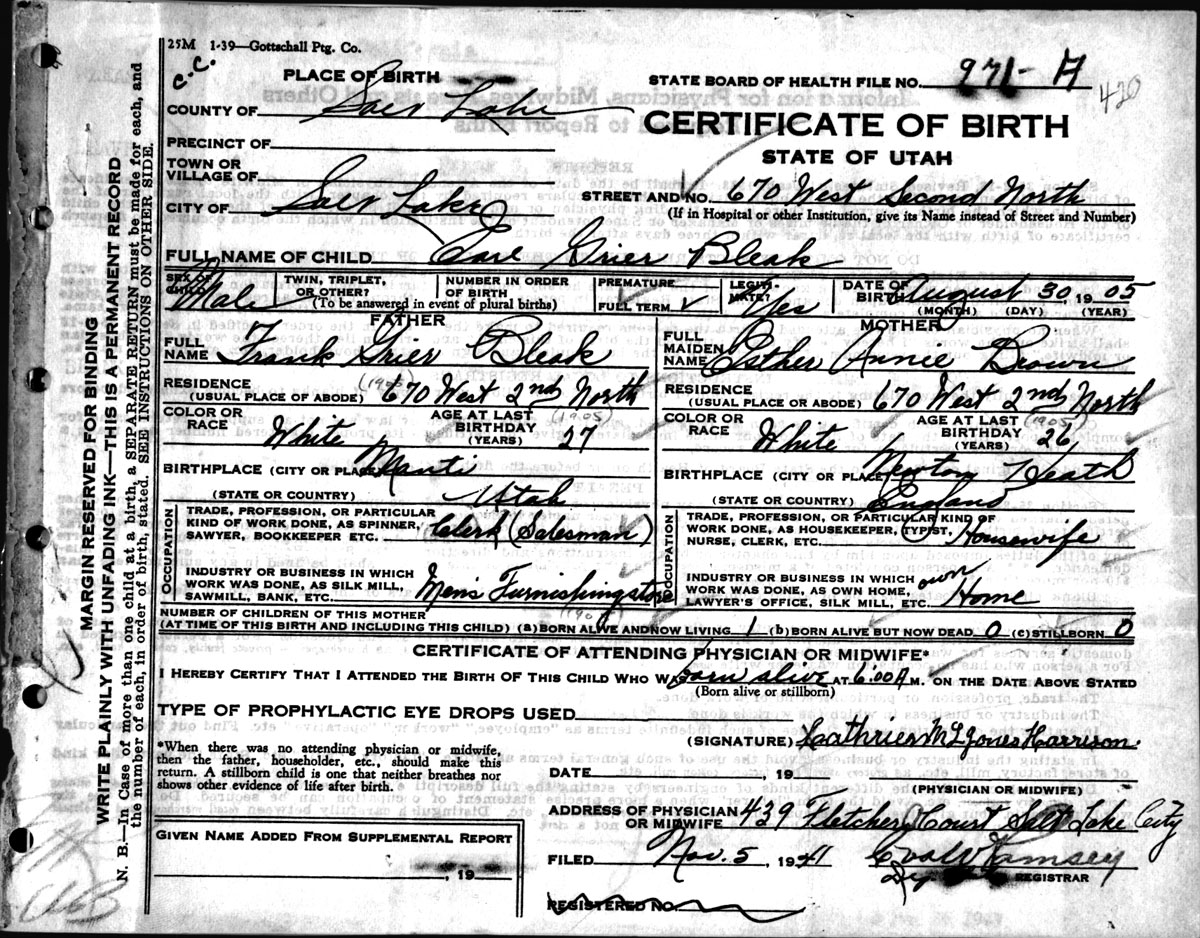 25M 1-39—Gottschall Ptg. Co.
C.C.
PLACE OF BIRTH
STATE BOARD OF HEALTH FILE NO. 971-A
420
COUNTY OF Salt Lake
CERTIFICATE OF BIRTH
PRECINCT OF
STATE OF UTAH
TOWN OR VILLAGE OF
CITY OF Salt Lake
STREET AND NO. 670 West Second North
(If in Hospital or other Institution, give its Name instead of Street and Number)
FULL NAME OF CHILD Earl Grier Bleak
SEX OF CHILD Male
TWIN, TRIPLET, OR OTHER?
NUMBER IN ORDER OF BIRTH
(To be answered in event of plural births)
PREMATURE
FULL TERM ✓
LEGITIMATE? Yes
DATE OF BIRTH August 30 1905
(MONTH) (DAY) (YEAR)
FATHER
FULL NAME Frank Grier Bleak
RESIDENCE (1905) 670 West 2nd North
(USUAL PLACE OF ABODE)
COLOR OR RACE White
AGE AT LAST BIRTHDAY (1905) 27
(YEARS)
BIRTHPLACE (CITY OR PLACE) Manti
(STATE OR COUNTRY) Utah
OCCUPATION
TRADE, PROFESSION, OR PARTICULAR
KIND OF WORK DONE, AS SPINNER,
SAWYER, BOOKKEEPER ETC. Clerk (Salesman)
INDUSTRY OR BUSINESS IN WHICH
WORK WAS DONE, AS SILK MILL,
SAWMILL, BANK, ETC. Mens Furnishing store
MOTHER
FULL MAIDEN NAME Esther Annie Brown
RESIDENCE 670 West 2nd North
(USUAL PLACE OR ABODE)
COLOR OR RACE White
AGE AT LAST BIRTHDAY (1905) 26
(YEARS)
BIRTHPLACE (CITY OR PLACE) Newton Heath
(STATE OR COUNTRY) England
OCCUPATION
TRADE, PROFESSION, OR PARTICULAR KIND OF
WORK DONE, AS HOUSEKEEPER, TYPIST,
NURSE, CLERK, ETC. Housewife
INDUSTRY OR BUSINESS IN WHICH
WORK WAS DONE, AS OWN HOME,
LAWYER'S OFFICE, SILK MILL, ETC. own Home
NUMBER OF CHILDREN OF THIS MOTHER
(AT TIME OF THIS BIRTH AND INCLUDING THIS CHILD) (a) BORN ALIVE AND NOW LIVING 1 (b) BORN ALIVE BUT NOW DEAD 0 (c) STILLBORN 0
CERTIFICATE OF ATTENDING PHYSICIAN OR MIDWIFE*
I HEREBY CERTIFY THAT I ATTENDED THE BIRTH OF THIS CHILD WHO WAS born alive AT 6:00 A M. ON THE DATE ABOVE STATED
(Born alive or stillborn)
TYPE OF PROPHYLACTIC EYE DROPS USED
*When there was no attending physician or midwife,
then the father, householder, etc., should make this
return. A stillborn child is one that neither breathes nor
shows other evidence of life after birth.
(SIGNATURE) Jones Harrison
DATE , 19
(PHYSICIAN OR MIDWIFE)
ADDRESS OF PHYSICIAN OR MIDWIFE 439 Fletcher Court Salt Lake City
GIVEN NAME ADDED FROM SUPPLEMENTAL REPORT
, 19
FILED Nov. 5, 1941 Ramsey
REGISTRAR
REGISTERED NO.
MARGIN RESERVED FOR BINDING
WRITE PLAINLY WITH UNFADING INK—THIS IS A PERMANENT RECORD
N. B.—In Case of more than one child at a birth, a SEPARATE RETURN must be made for each, and
the number of each, in order of birth, stated. SEE INSTRUCTIONS ON OTHER SIDE.